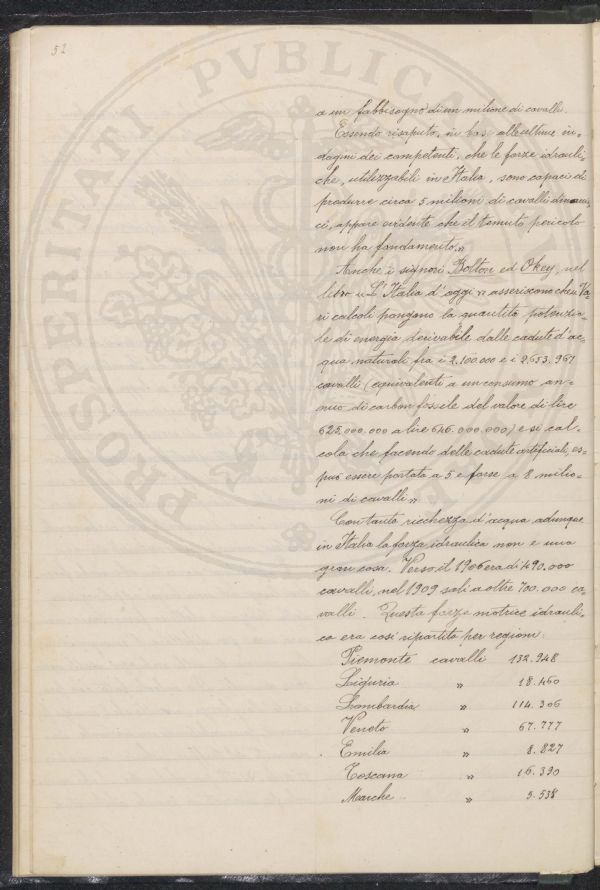 52
a un fabbisogno di un milione di cavalli.
Essendo risaputo, in base alle ultime in-
dagini dei competenti, che le forze idrauli-
che, utilizzabili in Italia, sono capaci di
produrre circa 5 milioni di cavalli dinami-
ci, appare evidente che il temuto pericolo
non ha fondamento. »
Anche i signori Bolton ed Okey, nel
libro « L'Italia d'oggi » asseriscono che « Va-
ri calcoli pongono la quantità potenzia-
le di energia derivabile dalle cadute d'ac-
qua naturali fra i 2.100.000 e i 2.653.967
cavalli (equivalenti a un consumo an-
nuo di carbon fossile del valore di lire
622.000.000 a lire 646.000.000) e si cal-
cola che facendo delle cadute artificiali, es-
può essere portata a 5 e forse a 8 milio-
ni di cavalli ».
Con tanta ricchezza d'acqua adunque
in Italia la forza idraulica non è una
gran cosa. Verso il 1906 era di 490.000
cavalli, nel 1909 salì a oltre 700.000 ca-
valli. Questa forza motrice idrauli-
ca era così ripartita per regioni:
Piemonte cavalli 132.948
Liguria » 18.460
Lombardia » 114.306
Veneto » 67.777
Emilia » 8.827
Toscana » 16.390
Marche » 5.538
PROSPERITATI PVBLICAE